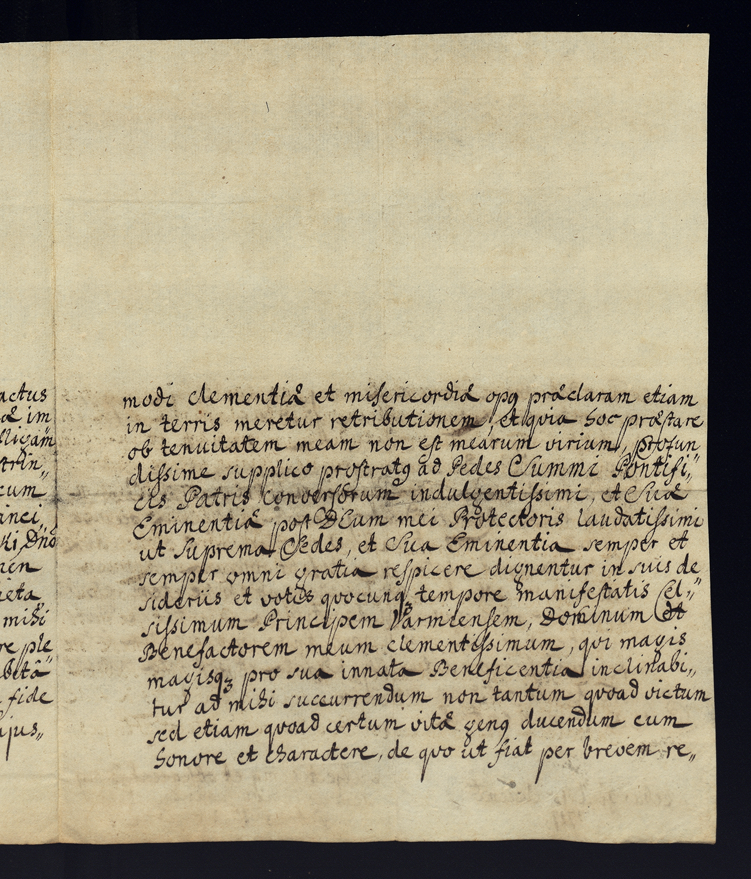 actus
æ im
lligam
strin„
cum
inci
ki Dno
men
ieta
mihi
re ple
abitâ
fide
ujus„
modi clementiæ et misericordiæ opq præclaram etiam
in terris meretur retributionem, et quia hoc præstare
ob tenuitatem meam non est mearum virium, profun
dissime supplico prostratq ad Pedes Summi Pontifi„
cis Patris conversorum indulgentissimi, et Suæ
Eminentiæ post DEum mei Protectoris laudatissimi
ut Suprema Sedes, et Sua Eminentia semper et
semper omni gratia respicere dignentur in suis de
sideriis et votis quocunq tempore manifestatis Cel„
sissimum Principem Varmiensem, Dominum et
Benefactorem meum clementissimum, qui magis
magisqz pro sua innata Beneficentia inclinabi„
tur ad mihi succurrendum non tantum quoad victum
sed etiam quoad certum vitæ genq ducendum cum
honore et charactere, de quo ut fiat per brevem re„